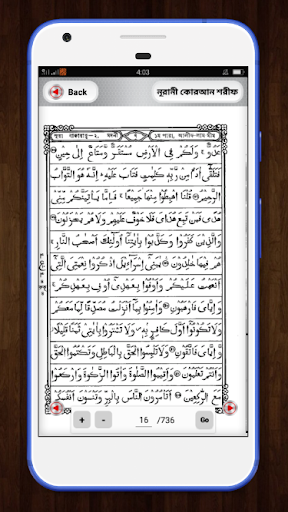 4:03
Back
নূরানী কোরআন শরীফ
عَدُوٌّ ۚ وَلَكُمْ فِي الْأَرْضِ مُسْتَقَرٌّ وَّمَتَاعٌ إِلَىٰ حِينٍ
فَتَلَقَّىٰ آدَمُ مِنْ رَّبِّهِ كَلِمٰتٍ فَتَابَ عَلَيْهِ ۚ إِنَّهُ هُوَ التَّوَّابُ
الرَّحِيمُ قُلْنَا اهْبِطُوا مِنْهَا جَمِيعًا ۚ فَإِمَّا يَأْتِيَنَّكُمْ مِّنِّي
هُدًى فَمَنْ تَبِعَ هُدَايَ فَلَا خَوْفٌ عَلَيْهِمْ وَلَا هُمْ يَحْزَنُونَ
وَالَّذِينَ كَفَرُوا وَكَذَّبُوا بِآيٰتِنَا أُولٰئِكَ أَصْحٰبُ النَّارِ ۚ
هُمْ فِيهَا خٰلِدُونَ يٰبَنِي إِسْرَاءِيلَ اذْكُرُوا نِعْمَتِيَ الَّتِي
أَنْعَمْتُ عَلَيْكُمْ وَأَوْفُوا بِعَهْدِي أُوفِ بِعَهْدِكُمْ ۚ
وَإِيَّايَ فَارْهَبُونِ وَآمِنُوا بِمَا أَنْزَلْتُ مُصَدِّقًا لِّمَا مَعَكُمْ
وَلَا تَكُونُوا أَوَّلَ كَافِرٍ بِهِ ۖ وَلَا تَشْتَرُوا بِآيٰتِي ثَمَنًا قَلِيلًا
وَّإِيَّايَ فَاتَّقُونِ وَلَا تَلْبِسُوا الْحَقَّ بِالْبَاطِلِ وَتَكْتُمُوا الْحَقَّ
وَأَنْتُمْ تَعْلَمُونَ وَأَقِيمُوا الصَّلٰوةَ وَآتُوا الزَّكٰوةَ وَارْكَعُوا
مَعَ الرّٰكِعِينَ أَتَأْمُرُونَ النَّاسَ بِالْبِرِّ وَتَنْسَوْنَ أَنْفُسَكُمْ
+ - 16 /736 Go